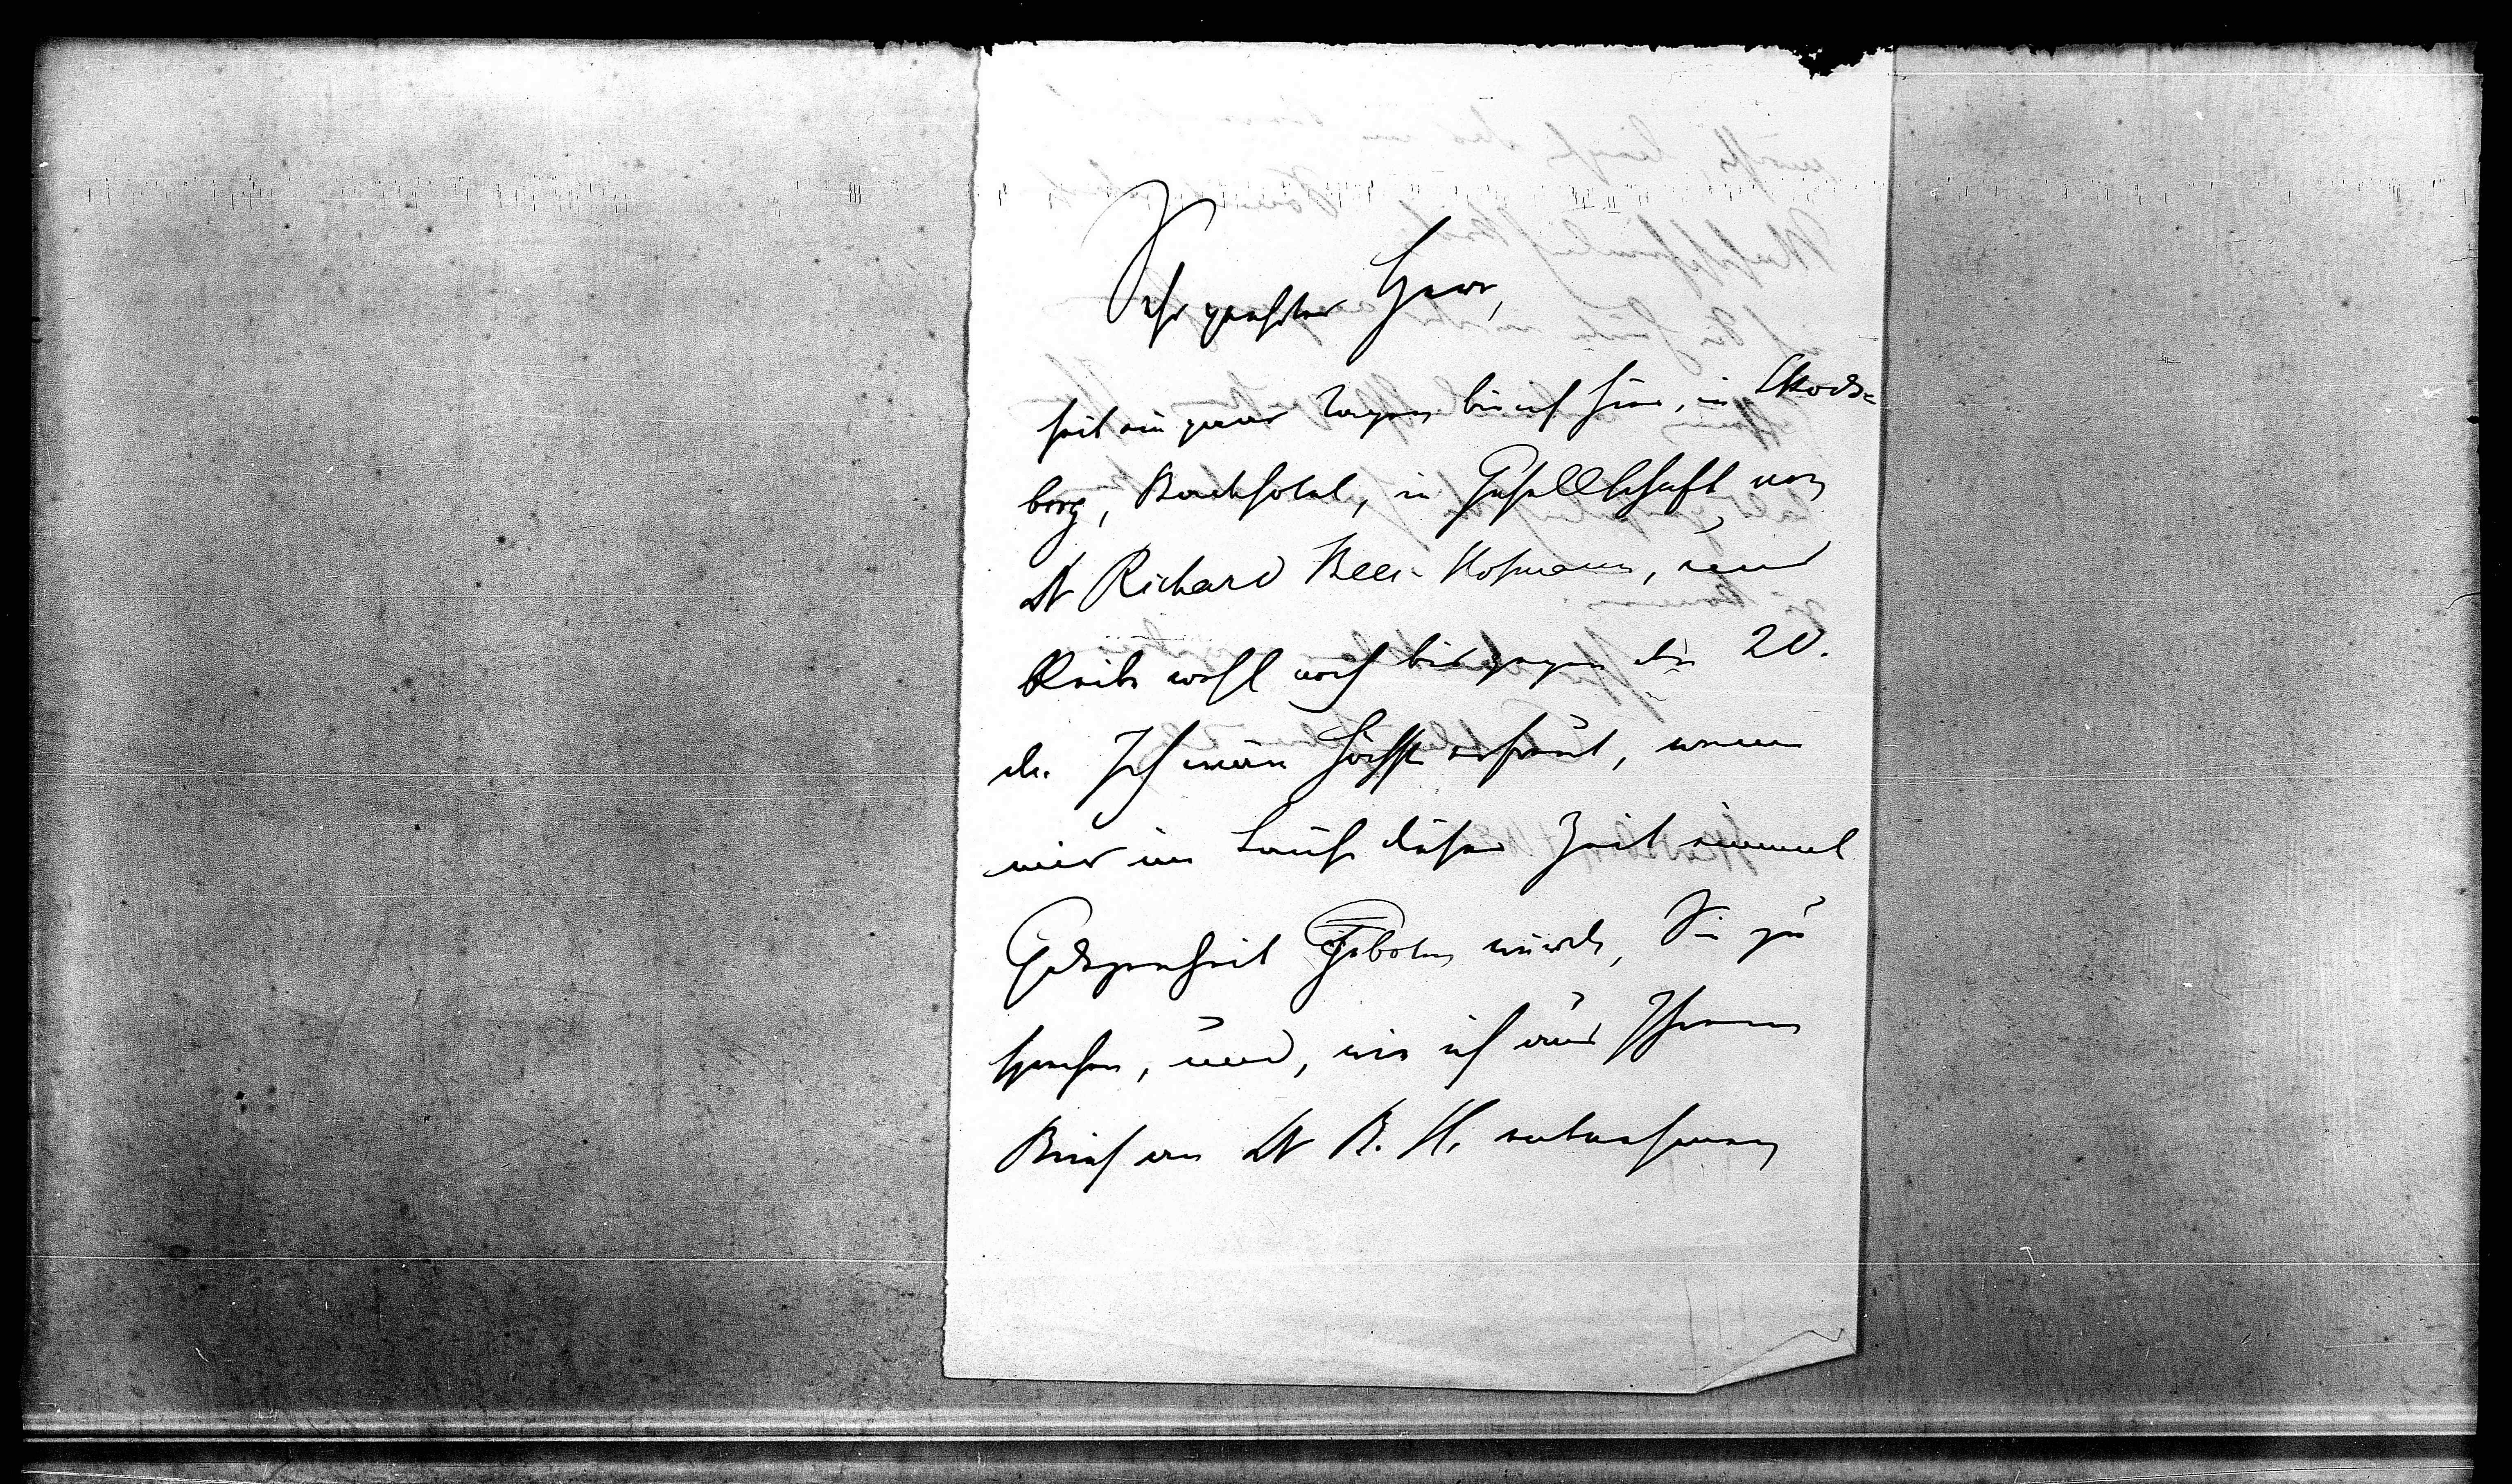 Sehr geehrter Herr,
seit ein paar Tagen bin ich hier, in Skods-
borg, Badehotel, in Gesellschaft von
Dr Richard Beer-Hofmann, und
bleibe wohl noch bis gegen den 20.
da. Ich wäre höchst erfreut, wenn
mir im Laufe dieser Zeit einmal
Gelegenheit geboten würde, Sie zu
sprechen, und, wie ich aus Ihrem
Brief an Dr B. H. entnehmen